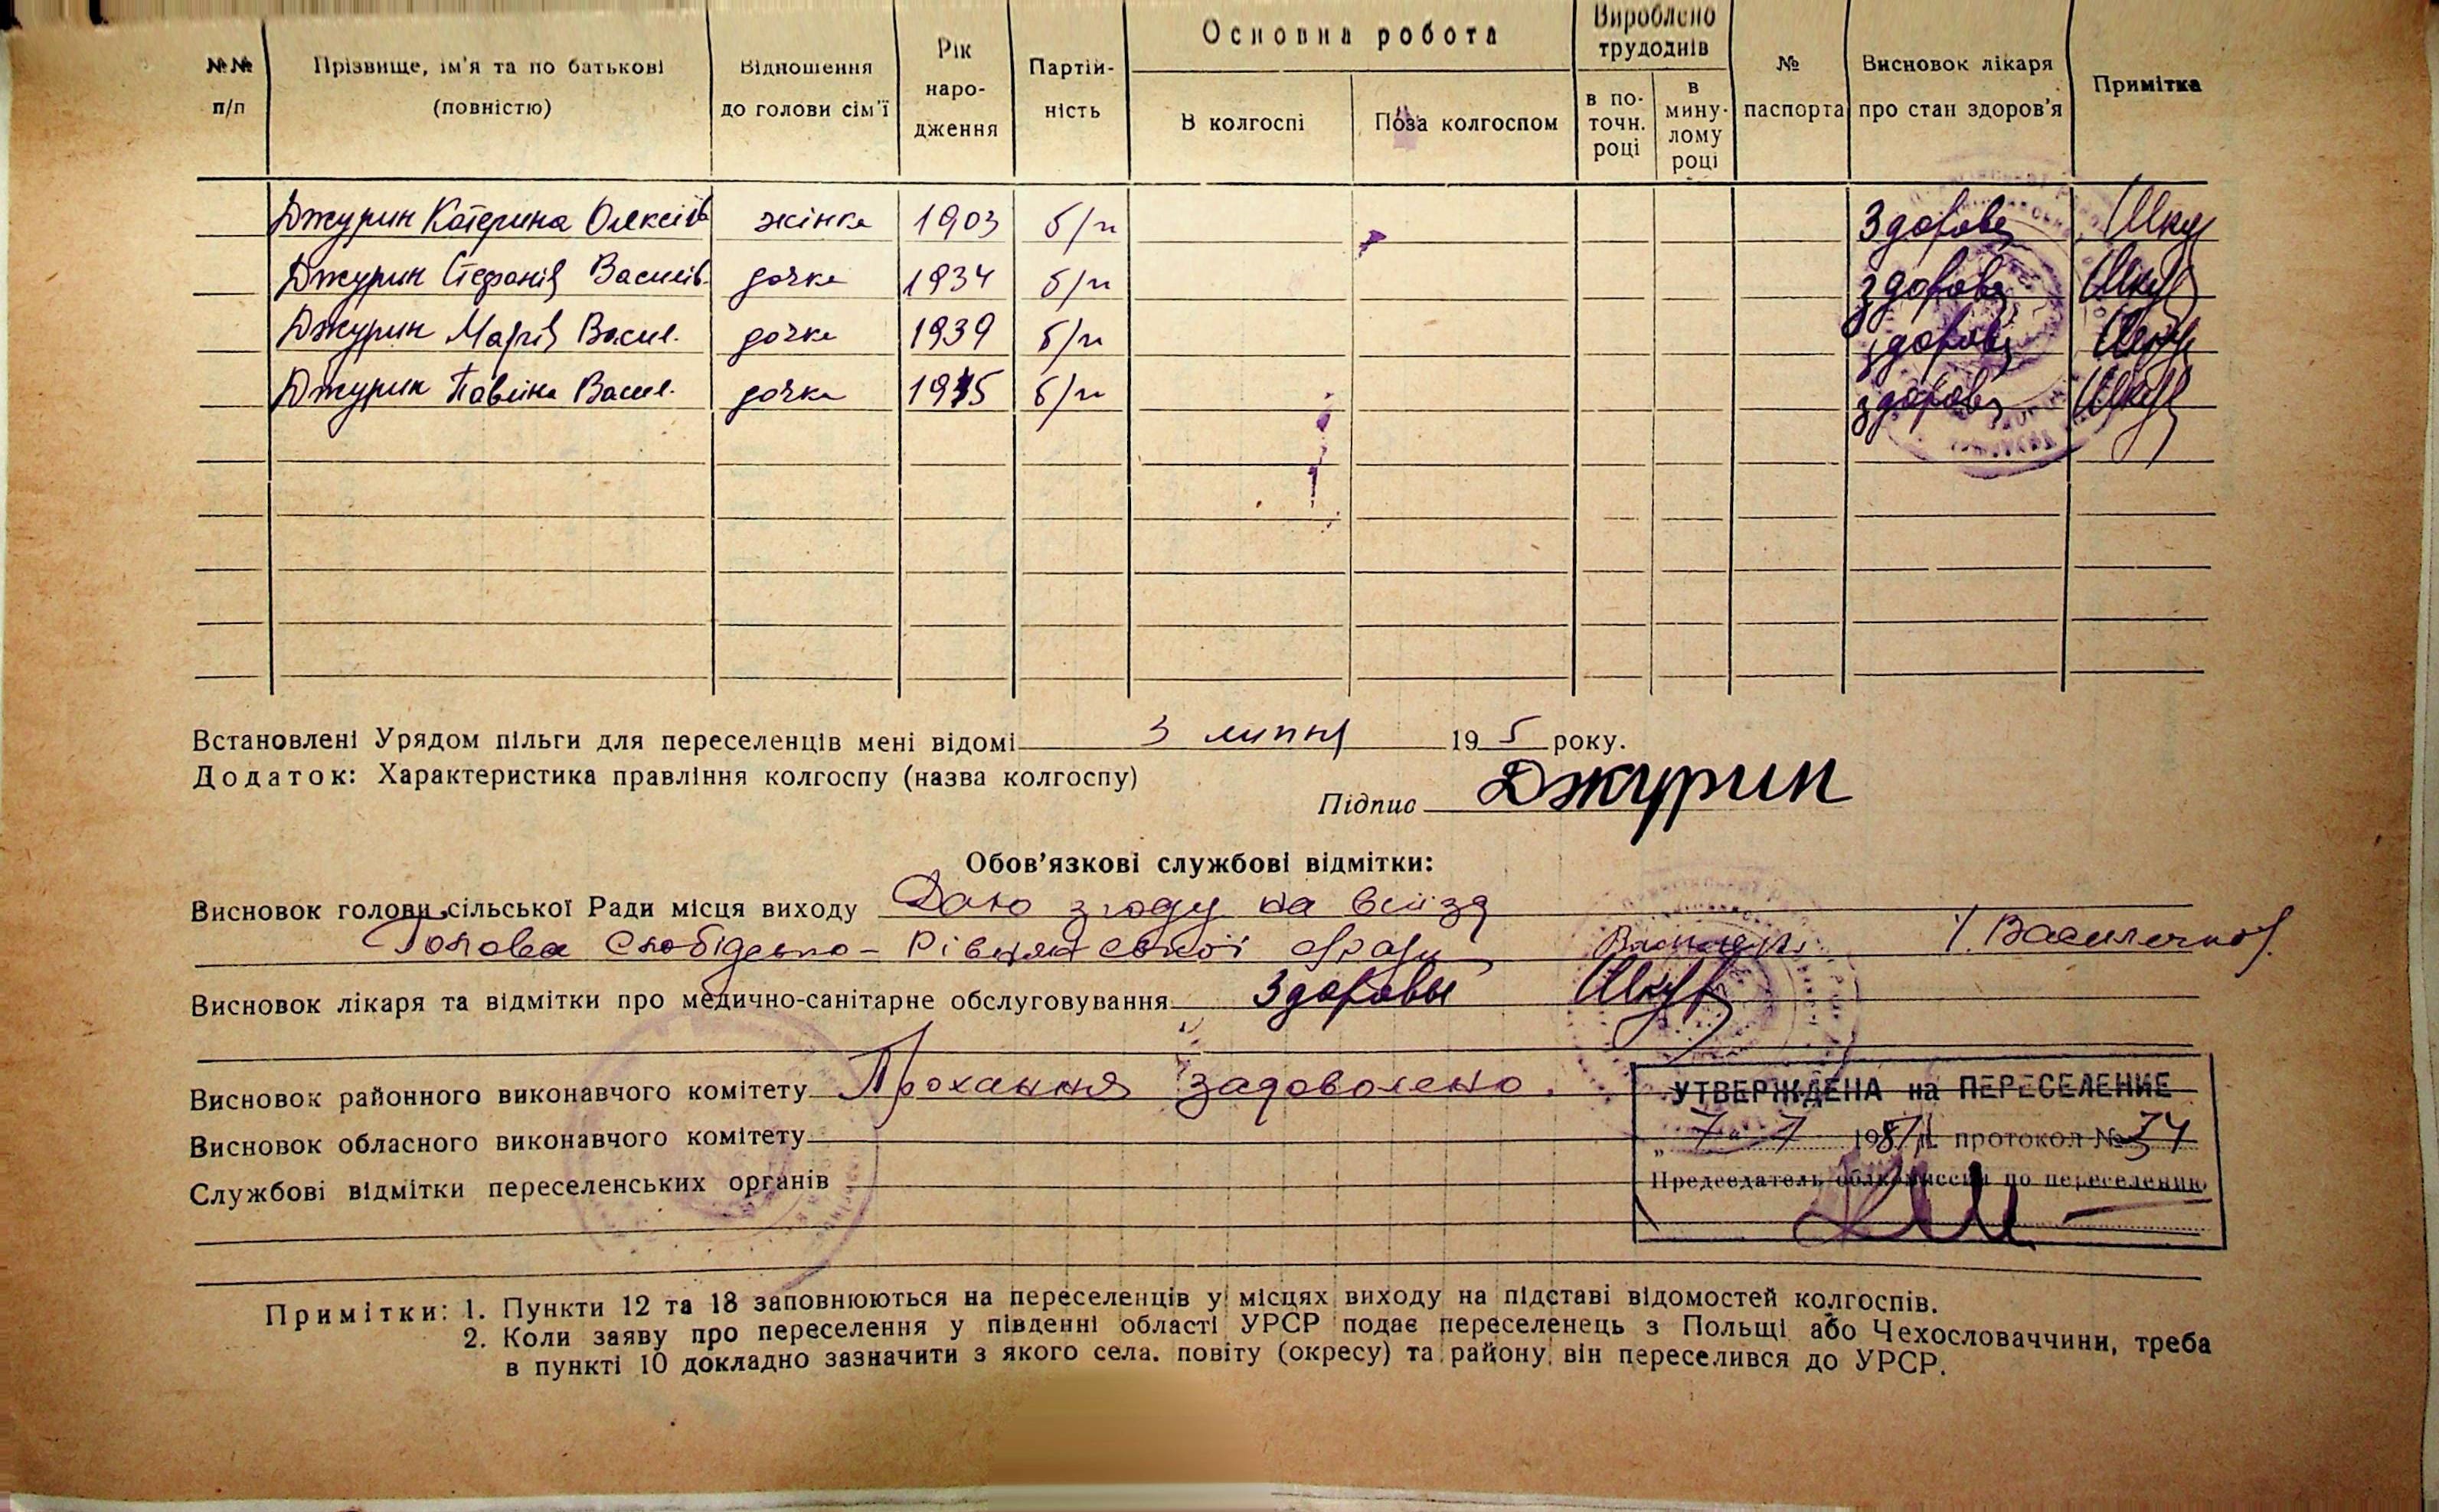 №№ п/п Прізвище, ім'я та по батькові (повністю) Відношення до голови сім'ї Рік народження Партійність Основна робота В колгоспі Поза колгоспом Вироблено трудоднів в поточн. році в минулому році № паспорта Висновок лікаря про стан здоров'я Примітка
Джурин Катерина Олексіїв жінка 1903 б/п Здорова
Джурин Стефанія Василів. дочка 1934 б/п здорова
Джурин Марія Васил. дочка 1939 б/п здорова
Джурин Павліна Васил. дочка 1945 б/п здорова
Встановлені Урядом пільги для переселенців мені відомі 3 липня 195 року.
Додаток: Характеристика правління колгоспу (назва колгоспу)
Підпис Джурин
Обов'язкові службові відмітки:
Висновок голови сільської Ради місця виходу Даю згоду на виїзд
Голова Слобідсько-Рівнянської с/ради
Висновок лікаря та відмітки про медично-санітарне обслуговування Здоровы
Висновок районного виконавчого комітету Прохання задоволено.
УТВЕРЖДЕНА на ПЕРЕСЕЛЕНИЕ
Висновок обласного виконавчого комітету
„7" 7 195 протокол № 34
Службові відмітки переселенських органів
Председатель облкомиссии по переселению
Примітки: 1. Пункти 12 та 18 заповнюються на переселенців у місцях виходу на підставі відомостей колгоспів.
2. Коли заяву про переселення у південні області УРСР подає переселенець з Польщі або Чехословаччини, треба
в пункті 10 докладно зазначити з якого села. повіту (окресу) та району він переселився до УРСР.